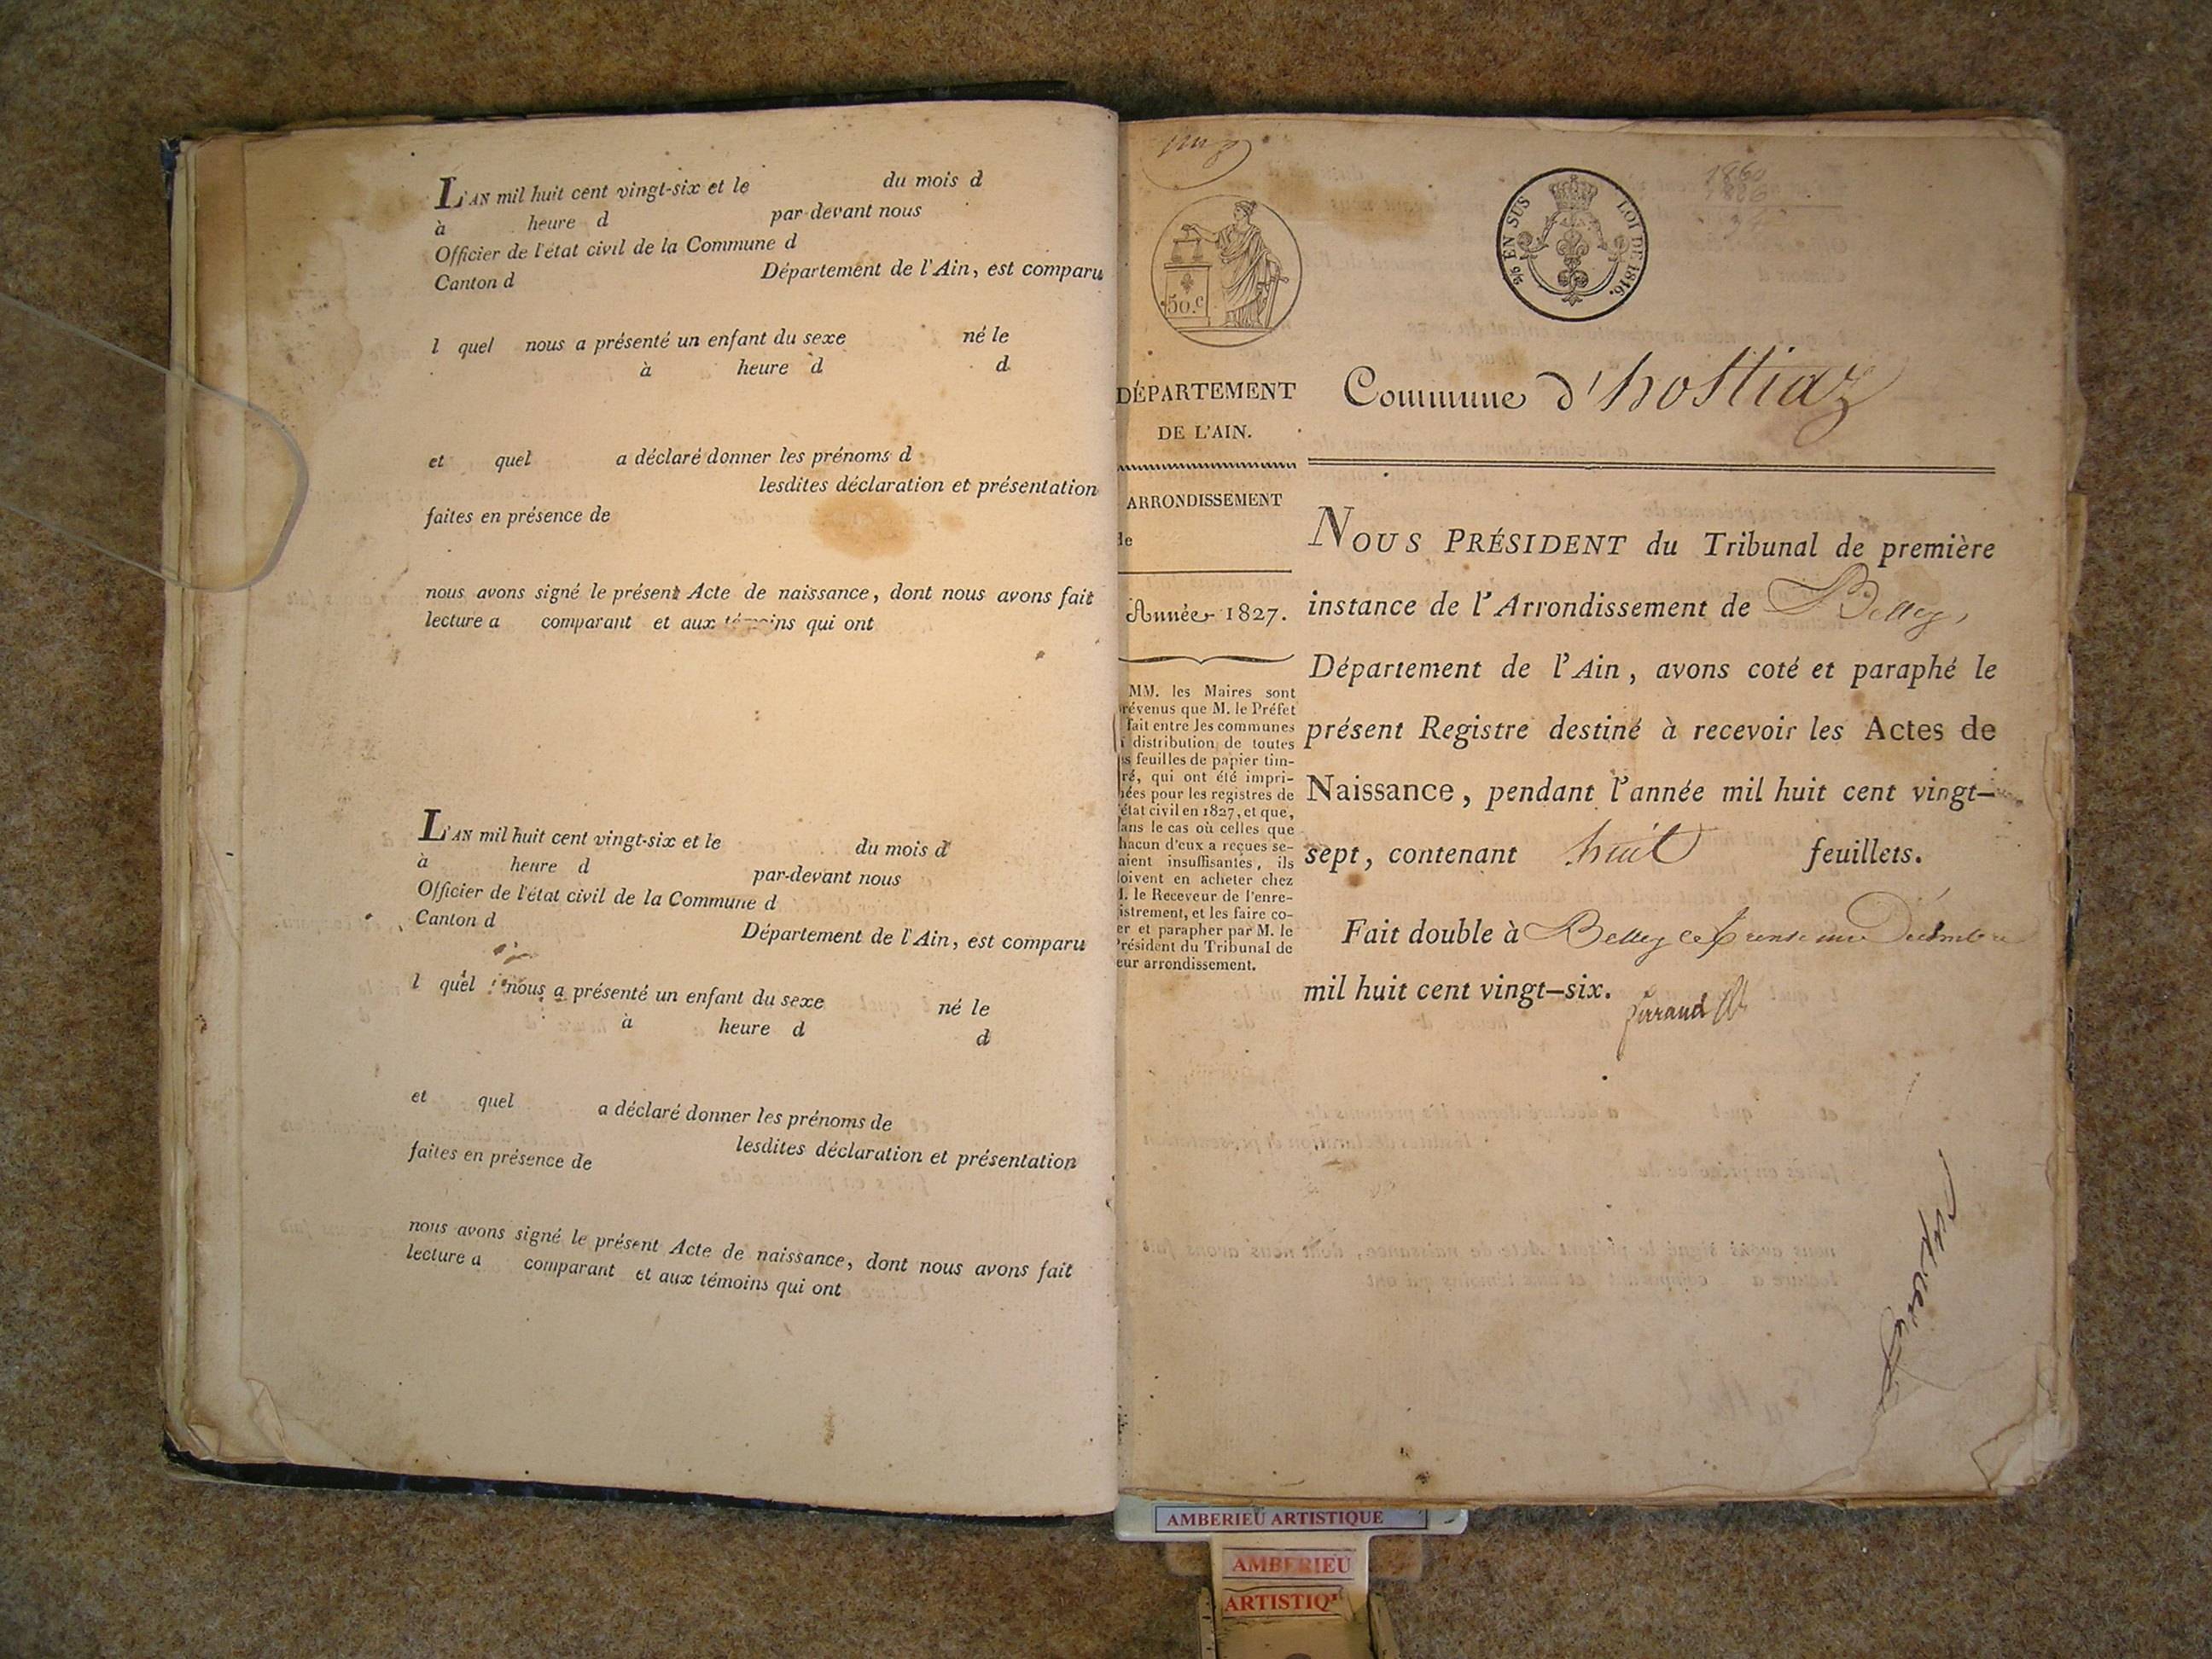 L'AN mil huit cent vingt-six et le du mois d
à heure d par-devant nous
Officier de l'état civil de la Commune d
Canton d Département de l'Ain, est comparu
l quel nous a présenté un enfant du sexe né le
à heure d d
et quel a déclaré donner les prénoms d
lesdites déclaration et présentation
faites en présence de
nous avons signé le présent Acte de naissance, dont nous avons fait
lecture a comparant et aux témoins qui ont
L'AN mil huit cent vingt-six et le du mois d
à heure d par-devant nous
Officier de l'état civil de la Commune d
Canton d Département de l'Ain, est comparu
l quel nous a présenté un enfant du sexe né le
à heure d d
et quel a déclaré donner les prénoms de
lesdites déclaration et présentation
faites en présence de
nous avons signé le présent Acte de naissance, dont nous avons fait
lecture a comparant et aux témoins qui ont
50.c
2/6 EN SUS LOI DE 1816.
1860
1826
34
DÉPARTEMENT
DE L'AIN.
ARRONDISSEMENT
de
Année 1827.
MM. les Maires sont
révenus que M. le Préfet
fait entre les communes
distribution de toutes
s feuilles de papier tim-
ré, qui ont été impri-
ées pour les registres de
état civil en 1827, et que,
ans le cas où celles que
hacun d'eux a reçues se-
aient insuffisantes, ils
oivent en acheter chez
I. le Receveur de l'enre-
istrement, et les faire co-
er et parapher par M. le
résident du Tribunal de
eur arrondissement.
Commune d'hostiaz
NOUS PRÉSIDENT du Tribunal de première
instance de l'Arrondissement de Belley,
Département de l'Ain, avons coté et paraphé le
présent Registre destiné à recevoir les Actes de
Naissance, pendant l'année mil huit cent vingt-
sept, contenant huit feuillets.
Fait double à Belley ce trente un Décembre
mil huit cent vingt-six.
AMBERIEU ARTISTIQUE
AMBERIEU
ARTISTIQ